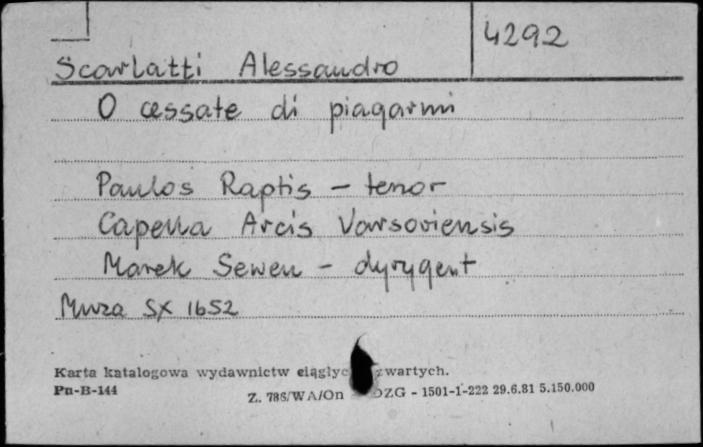 4292
Scarlatti Alessandro
O cessate di piagarmi
Paulos Raptis - tenor
Capella Arcis Varsoviensis
Marek Sewen - dyrygent
Muza SX 1652
Karta katalogowa wydawnictw ciągłyc zwartych.
Pu-B-144
Z. 786/WA/On DZG - 1501-1-222 29.6.81 5.150.000